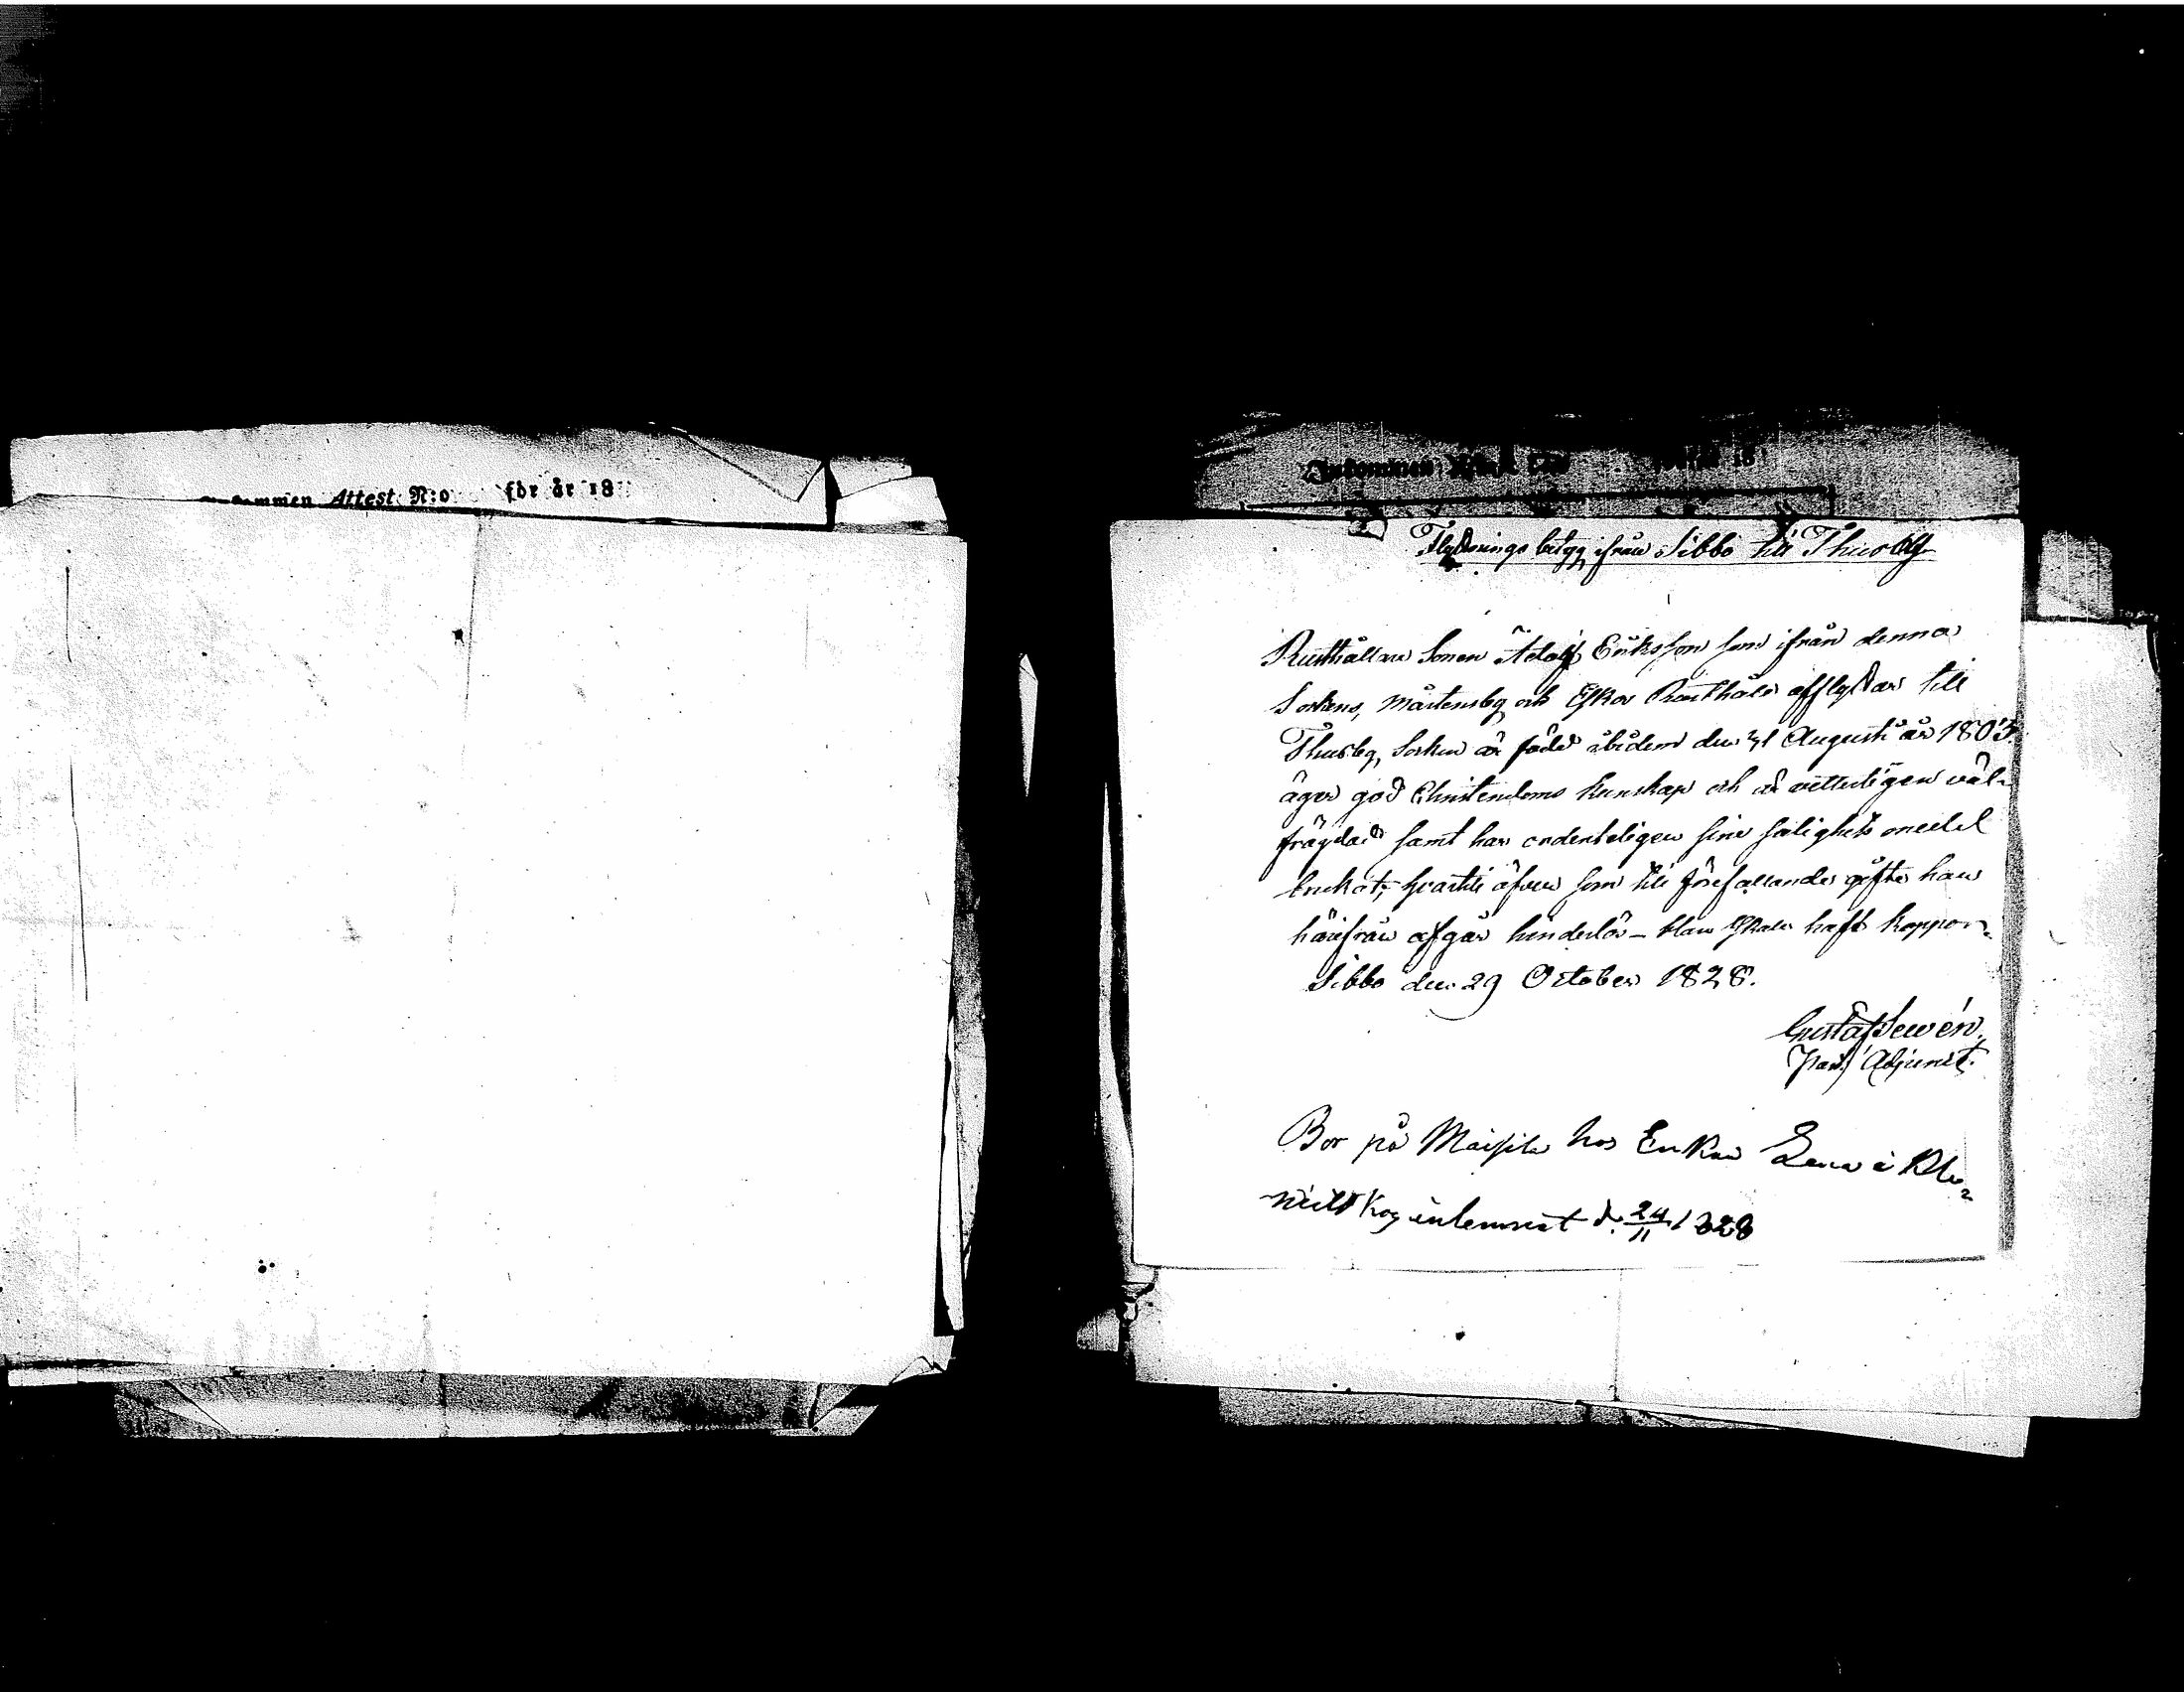 Attest N:o för år 18
Flyttnings betyg ifrån Sibbo till Thusby
Rusthållare Sonen Adolf Eriksson som ifrån denna
Sockens, Mårtensby och Eskor Rusthåll afflyttar till
Thusby Socken är född ibidem den 31 Augusti år 1805.
äger god Christendoms kunskap och är vetterligen väl-
frägdad samt har ordenteligen sine salighets medel
brukat; hvartil äfven som till förefallande gifte han
härifrån afgår hinderlös – Han skall haft koppor.
Sibbo den 29 October 1828.
Gustaf Lewén.
Past. Adjunct.
Bor på hos Enkan Lena à
inlemnat d. 24/11 1828